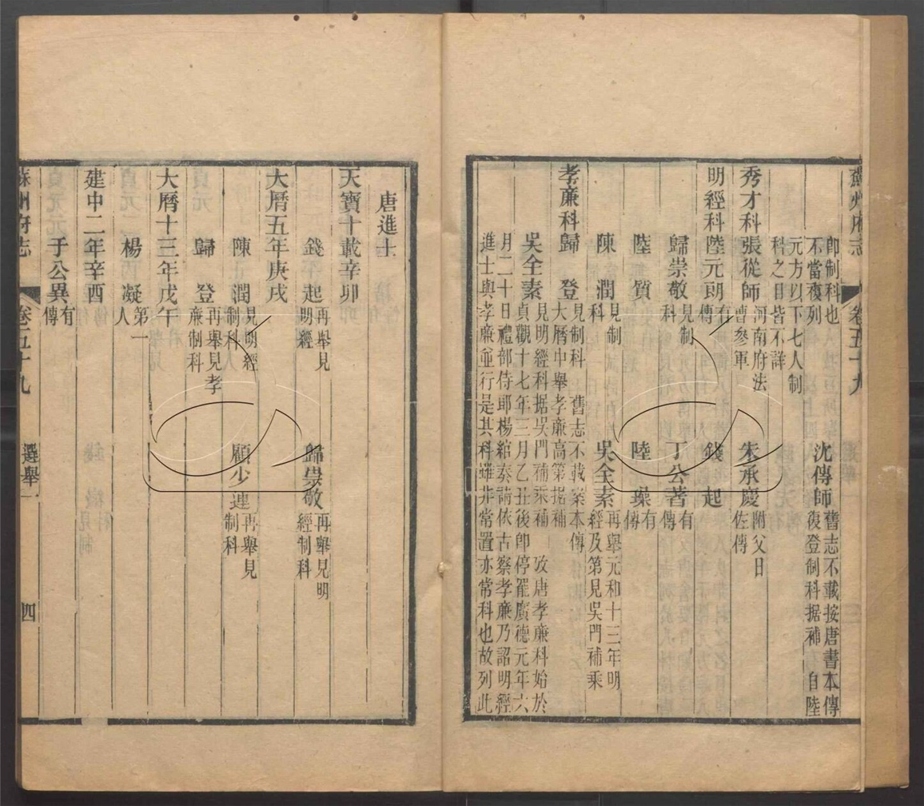 蘇州府志 卷五十九
卽制科也
不當複列
沈傳師
舊志不載按唐書本傳
復登制科据補 自陸
元方以下七人制
科之目皆不詳
秀才科張從師
河南府法
曹參軍
朱承慶
附父日
佐傳
明經科陸元朗
有
傳
錢 起
歸崇敬
見制
科
丁公著
有
傳
陸 質
陸 璪
有
傳
陳 潤
見制
科
吳全素
再舉元和十三年明
經及第見吳門補乘
孝廉科歸 登
見制科 舊志不載案本傳
大曆中舉孝廉高第据補
吳全素
見明經科据吳門補乘補 攷唐孝廉科始於
貞觀十七年三月乙丑後卽停罷廣德元年六
月二十日禮部侍郎楊綰奏請依古察孝廉乃詔明經
進士與孝廉並行是其科雖非常置亦常科也故列此
唐進士
天寶十載辛卯
錢 起
再舉見
明經
歸崇敬
再舉見明
經制科
大曆五年庚戌
陳 潤
見明經
制科
顧少連
再舉見
制科
歸 登
再舉見孝
廉制科
大曆十三年戊午
楊 凝
第一
人
建中二年辛酉
于公異
有
傳
蘇州府志 卷五十九 選舉一 四